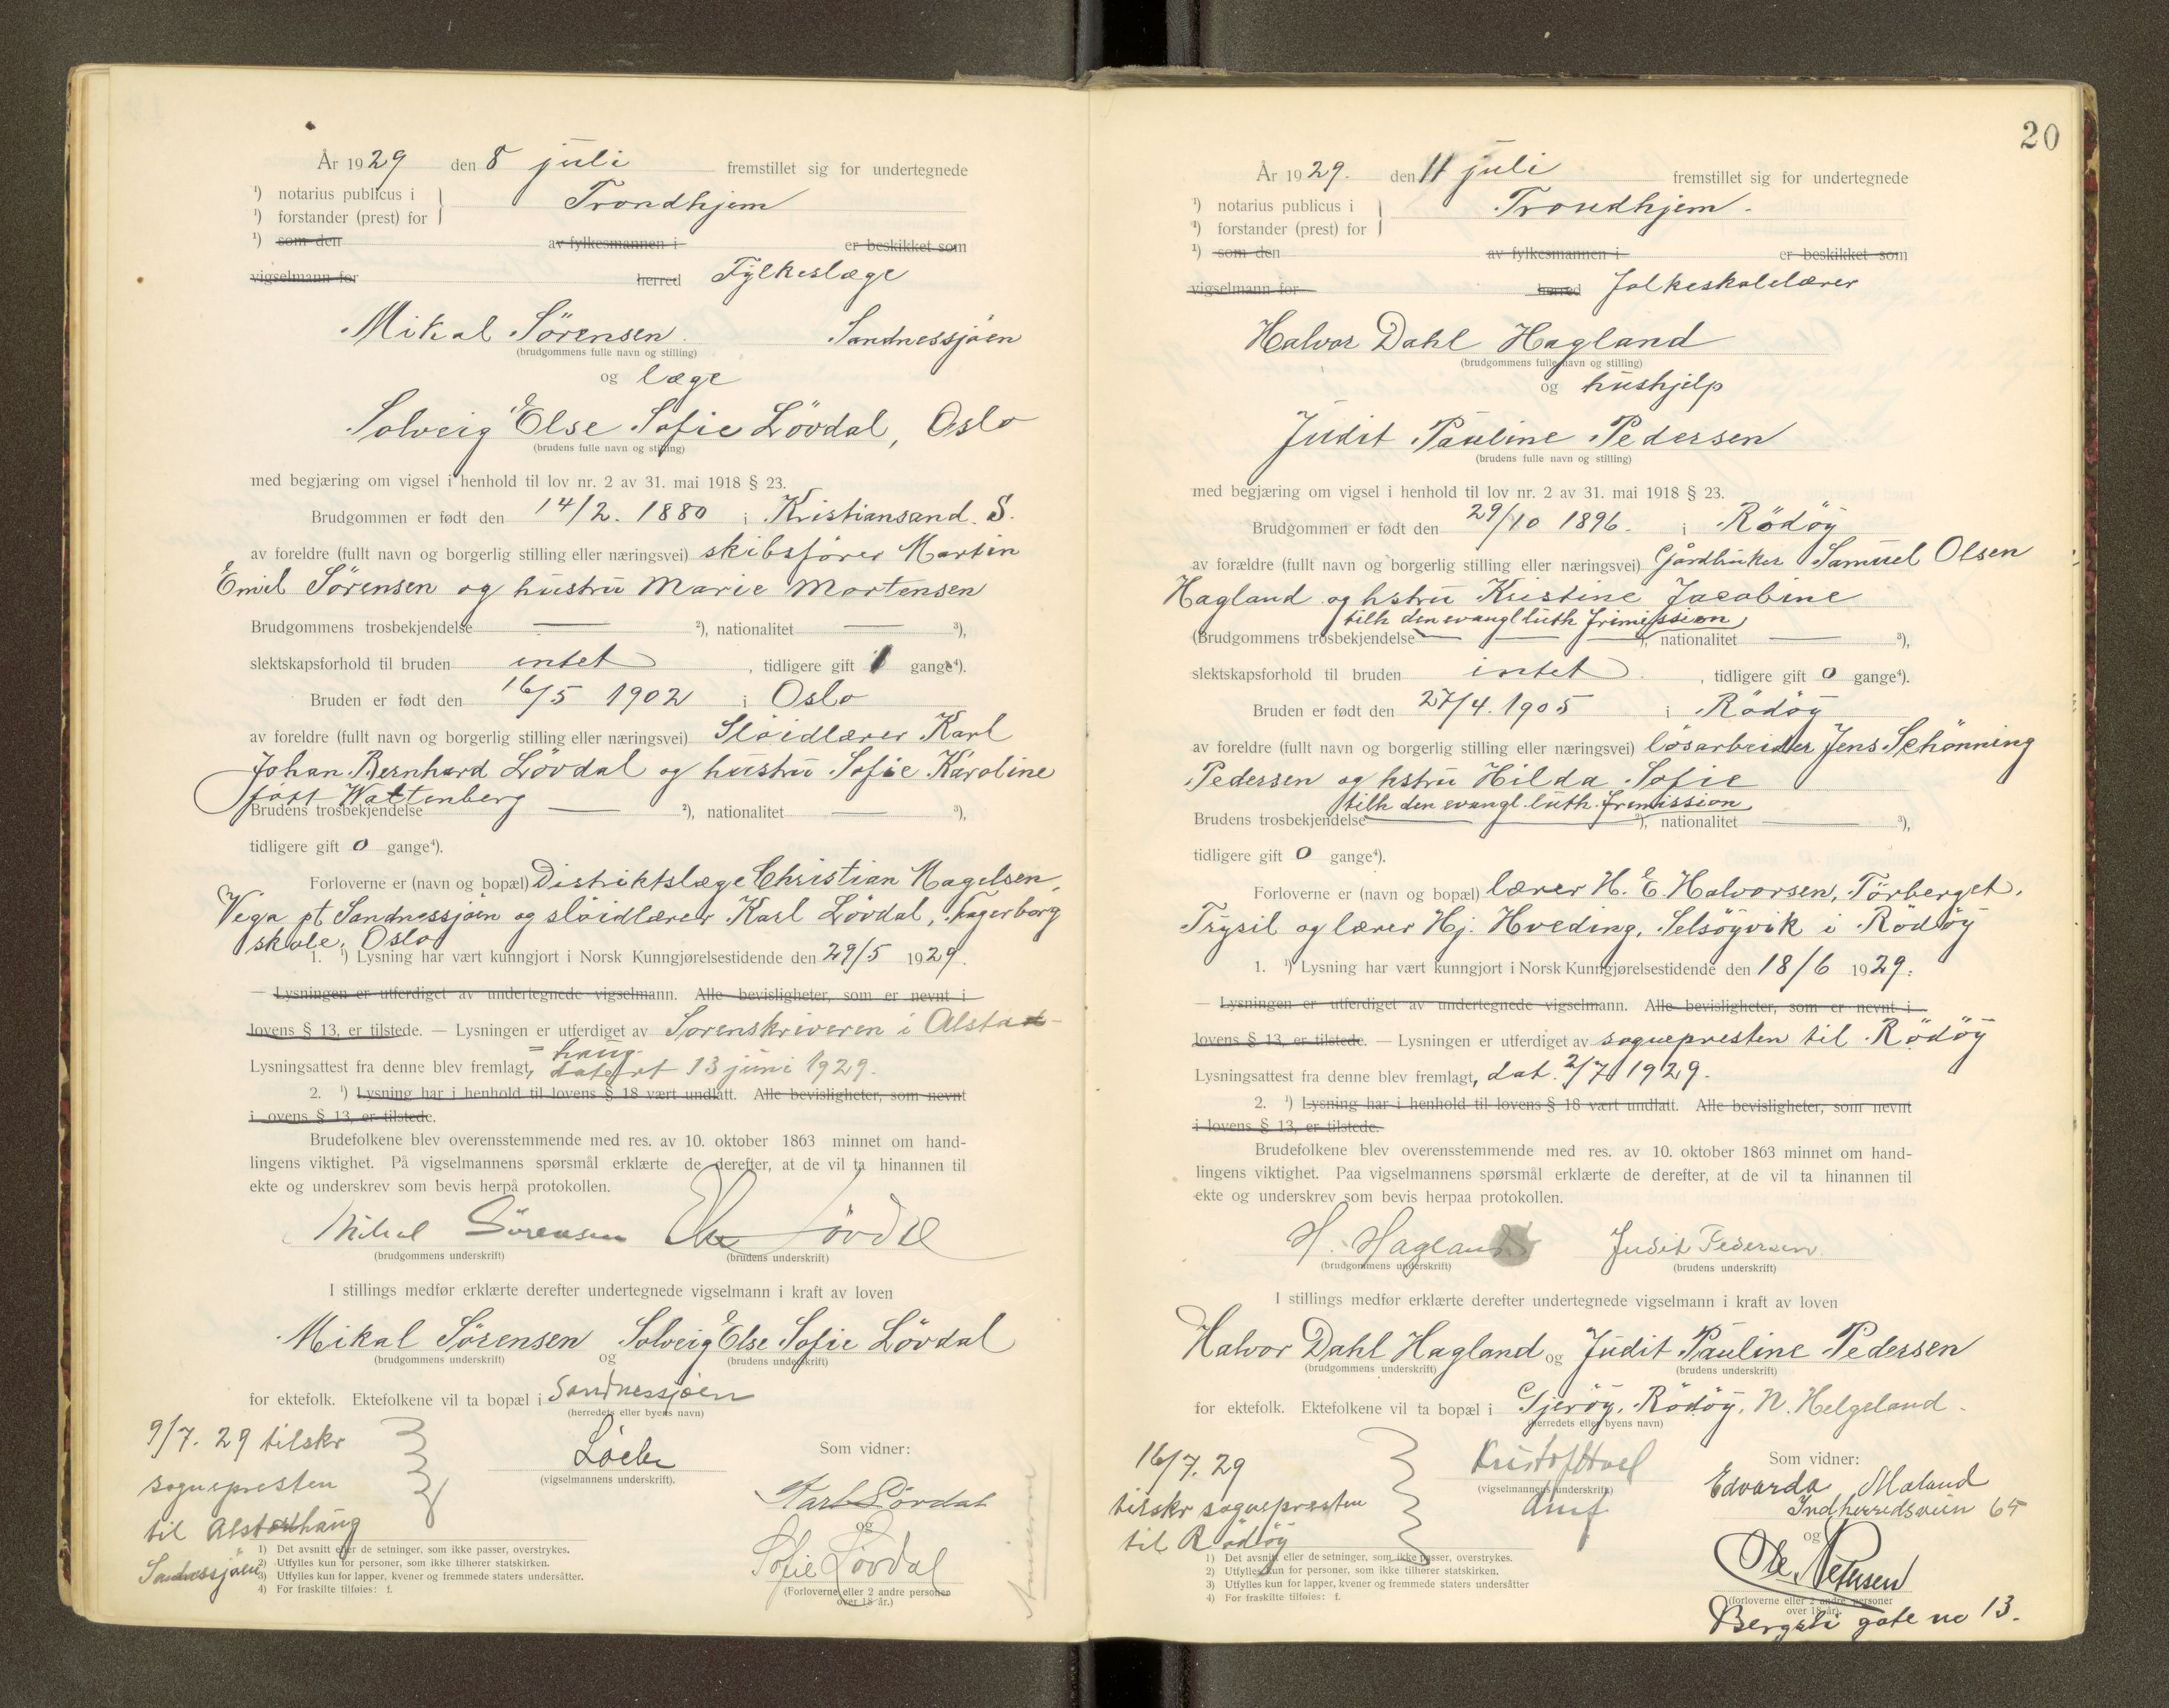 År 1929 den 8 juli fremstillet sig for undertegnede
¹) notarius publicus i } Trondhjem
¹) forstander (prest) for
¹) som den av fylkesmannen i er beskikket som
vigselmann for herred Fylkeslæge
Mikal Sörensen Sandnessjöen
(brudgommens fulle navn og stilling)
og læge
Solveig Else Sofie Lövdal, Oslo
(brudens fulle navn og stilling)
med begjæring om vigsel i henhold til lov nr. 2 av 31. mai 1918 § 23.
Brudgommen er født den 14/2. 1880 i Kristiansand. S.
av foreldre (fullt navn og borgerlig stilling eller næringsvei) skibsfører Martin
Emil Sörensen og hustru Marie Mortensen
Brudgommens trosbekjendelse — ²), nationalitet — ³),
slektskapsforhold til bruden intet, tidligere gift 1 gange⁴).
Bruden er født den 16/5 1902 i Oslo
av foreldre (fullt navn og borgerlig stilling eller næringsvei) Slöidlærer Karl
Johan Bernhard Lövdal og hustru Sofie Karoline
født Wattenberg
Brudens trosbekjendelse — ²), nationalitet — ³),
tidligere gift 0 gange⁴).
Forloverne er (navn og bopæl) Distriktslæge Christian Magelsen,
Vega pt Sandnessjöen og slöidlærer Karl Lövdal, Fagerborg
skole, Oslo
1. ¹) Lysning har vært kunngjort i Norsk Kunngjørelsestidende den 29/5 1929.
— Lysningen er utferdiget av undertegnede vigselmann. Alle bevisligheter, som er nevnt i
lovens § 13, er tilstede. — Lysningen er utferdiget av Sorenskriveren i Alsta
= haug.
Lysningsattest fra denne blev fremlagt, datert 13 juni 1929.
2. ¹) Lysning har i henhold til lovens § 18 vært undlatt. Alle bevisligheter, som nevnt
i lovens § 13, er tilstede.
Brudefolkene blev overensstemmende med res. av 10. oktober 1863 minnet om hand-
lingens viktighet. På vigselmannens spørsmål erklærte de derefter, at de vil ta hinannen til
ekte og underskrev som bevis herpå protokollen.
Mikal Sörensen Else Lövdal
(brudgommens underskrift) (brudens underskrift)
I stillings medfør erklærte derefter undertegnede vigselmann i kraft av loven
Mikal Sörensen og Solveig Else Sofie Lövdal
(brudgommens underskrift) (brudens underskrift)
for ektefolk. Ektefolkene vil ta bopæl i Sandnessjöen
(herredets eller byens navn)
9/7. 29 tilskr
sognepresten
til Alstahaug
Sandnessjöen
(vigselmannens underskrift).
Som vidner:
Karl Lövdal
og
Sofie Lövdal
(Forloverne eller 2 andre personer
over 18 år.)
1) Det avsnitt eller de setninger, som ikke passer, overstrykes.
2) Utfylles kun for personer, som ikke tilhører statskirken.
3) Utfylles kun for lapper, kvener og fremmede staters undersåtter.
4) For fraskilte tilføies: f.
20
År 1929. den 11 juli fremstillet sig for undertegnede
¹) notarius publicus i } Trondhjem.
¹) forstander (prest) for
¹) som den av fylkesmannen i er beskikket som
vigselmann for herred Folkeskolelærer
Halvor Dahl Hagland
(brudgommens fulle navn og stilling)
og hushjelp
Judit Pauline Pedersen
(brudens fulle navn og stilling)
med begjæring om vigsel i henhold til lov nr. 2 av 31. mai 1918 § 23.
Brudgommen er født den 29/10 1896. i Rödöy
av forældre (fullt navn og borgerlig stilling eller næringsvei) Gårdbruker Samuel Olsen
Hagland og hstru Kristine Jacobine
tilh den evangl luth frimission
(Brudgommens trosbekjendelse — ²), nationalitet — ³),
slektskapsforhold til bruden intet, tidligere gift 0 gange⁴).
Bruden er født den 27/4. 1905 i Rödöy
av foreldre (fullt navn og borgerlig stilling eller næringsvei) lösarbeider Jens Schönning
Pedersen og hstru Hilda Sofie
tilh den evangl. luth. frimission
Brudens trosbekjendelse — ²), nationalitet — ³),
tidligere gift 0 gange⁴).
Forloverne er (navn og bopæl) lærer H. E. Halvorsen, Törberget,
Trysil og lærer Hj. Hveding, Selsöyvik i Rödöy
1. ¹) Lysning har vært kunngjort i Norsk Kunngjørelsestidende den 18/6 1929.
— Lysningen er utferdiget av undertegnede vigselmann. Alle bevisligheter, som er nevnt i
lovens § 13, er tilstede. — Lysningen er utferdiget av sognepresten til Rödöy
Lysningsattest fra denne blev fremlagt, dat. 2/7 1929.
2. ¹) Lysning har i henhold til lovens § 18 vært undlatt. Alle bevisligheter, som nevnt
i lovens § 13, er tilstede.
Brudefolkene blev overensstemmende med res. av 10. oktober 1863 minnet om hand-
lingens viktighet. Paa vigselmannens spørsmål erklærte de derefter, at de vil ta hinannen til
ekte og underskrev som bevis herpaa protokollen.
H. Hagland Judit Pedersen
(brudgommens underskrift) (brudens underskrift)
I stillings medfør erklærte derefter undertegnede vigselmann i kraft av loven
Halvor Dahl Hagland og Judit Pauline Pedersen
(brudgommens underskrift) (brudens underskrift)
for ektefolk. Ektefolkene vil ta bopæl i Gjeröy, Rödöy, N. Helgeland.
(herredets eller byens navn)
16/7. 29
tilskr sognepresten
til Rödöy
(vigselmannens underskrift)
Som vidner:
Edvarda Maland
Indherredsveien 65
og
Ole Petersen
(forloverne eller 2 andre personer
over 18 år).
Bergsli gate no 13.
1) Det avsnitt eller de setninger, som ikke passer, overstrykes.
2) Utfylles kun for personer, som ikke tilhører statskirken.
3) Utfylles kun for lapper, kvener og fremmede staters undersåtter
4) For fraskilte tilføies: f.